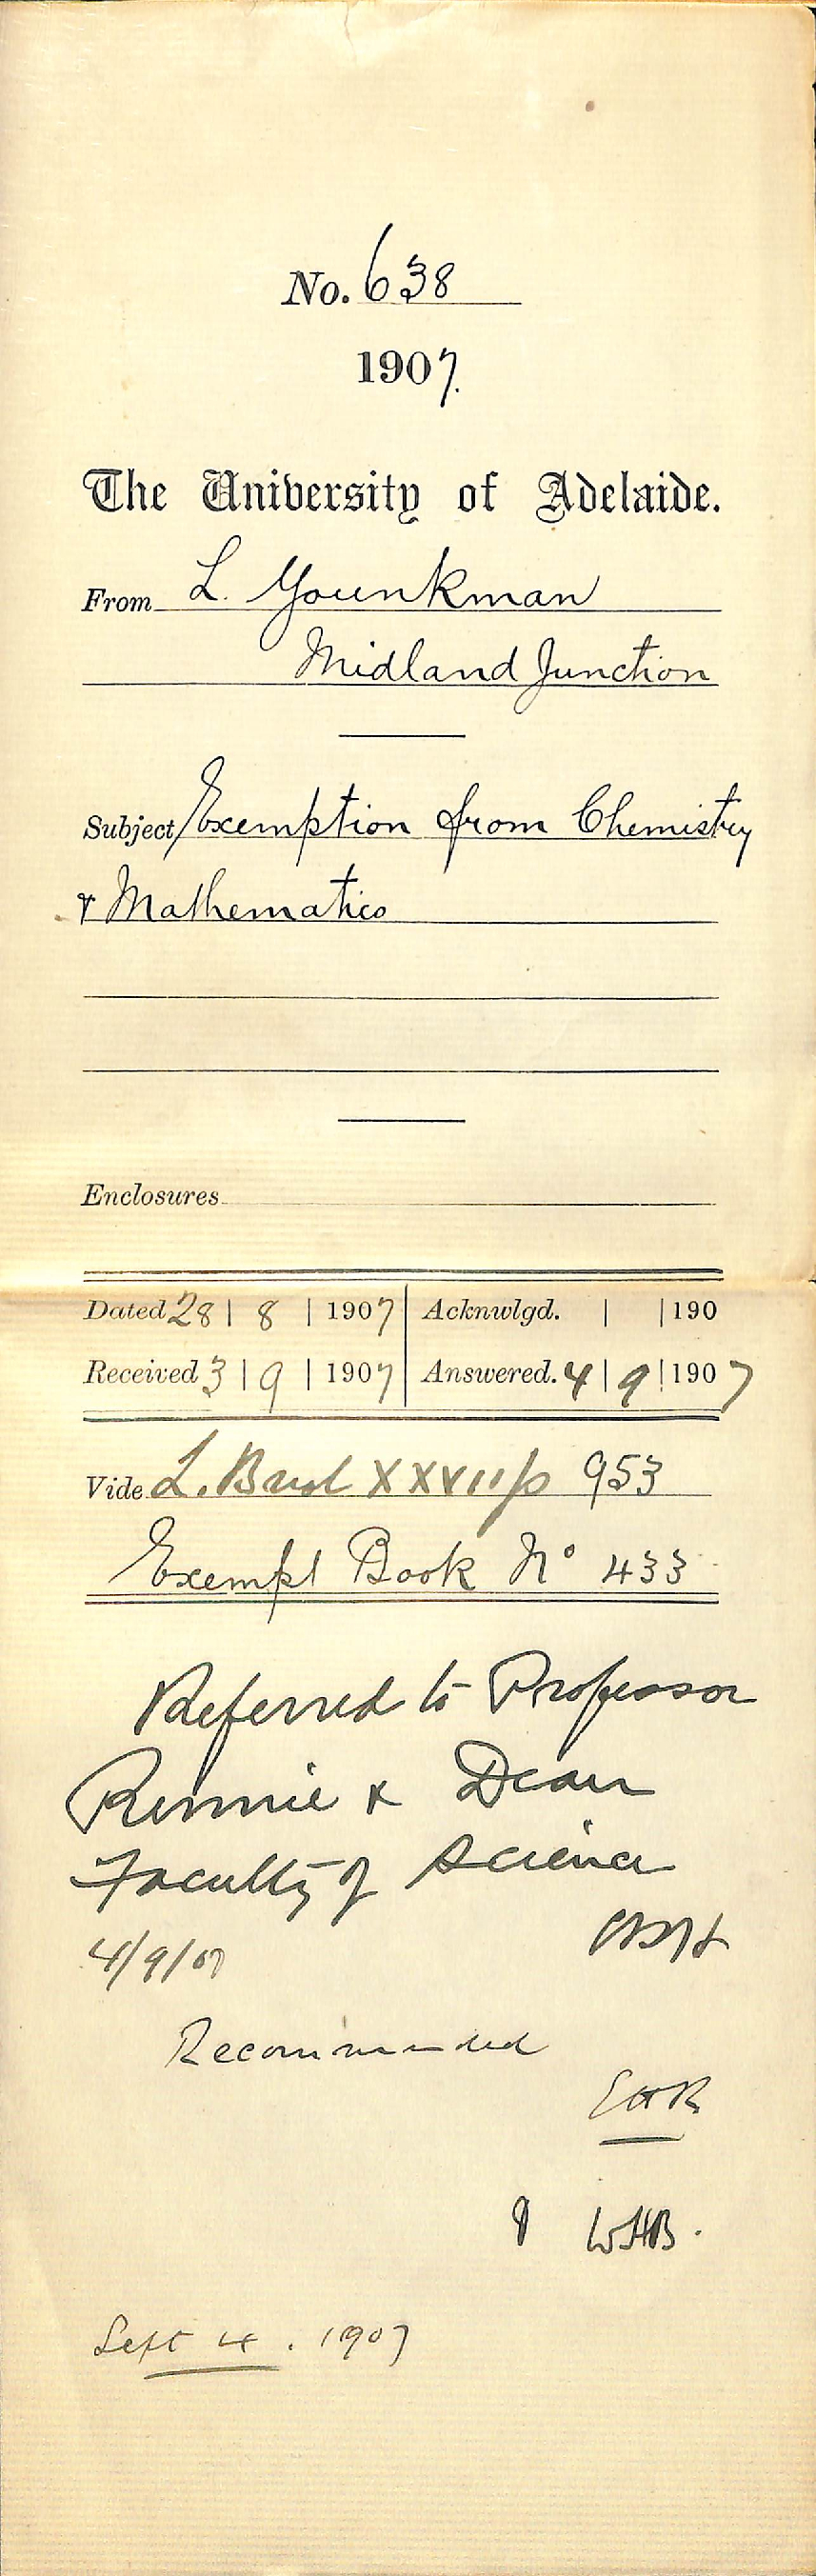 No. 638
1907.
The University of Adelaide.
From L. Younkman
Midland Junction
Subject Exemption from Chemistry
& Mathematics
Enclosures
Dated 28 | 8 | 1907 Acknwlgd. | | 190
Received 3 | 9 | 1907 Answered. 4 | 9 | 1907
Vide L. XXVII p 953
Exempt Book No 433
Referred to Professor
Rennie & Dean
Faculty of Science
4/9/07
Recommended
EHR
WHB.
Sept 4. 1907